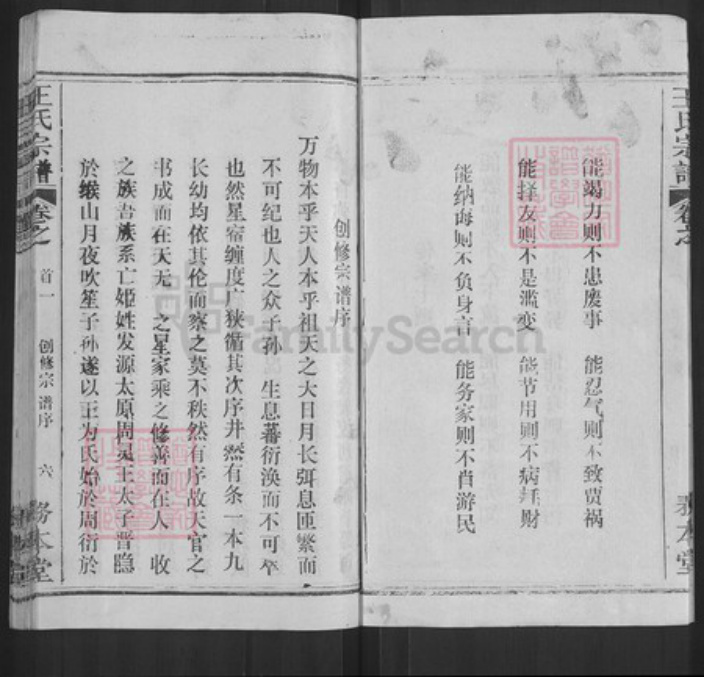 王氏宗譜
卷之
务本堂
能竭力则不患废事　能忍气则不致贾祸
能择友则不是滥变　能节用则不病耗财
能纳诲则不负身言　能务家则不肖游民
创修宗谱序
万物本乎天人本乎祖天之大日月长弭息匝繁而
不可纪也人之众子孙　生息蕃衍涣而不可
也然星宿缠度广狭循其次序井然有条一本九
长幼均依其伦而察之莫不秩然有序故天官之
书成而在天无　之星家乘之修善而在人　收
之族吾族系亡姬姓发源太原周灵王太子晋隐
於缑山月夜吹笙子孙遂以王为氏始於周衍於
王氏宗譜
卷之
首一
创修宗谱序
六
务本堂
FamilySearch